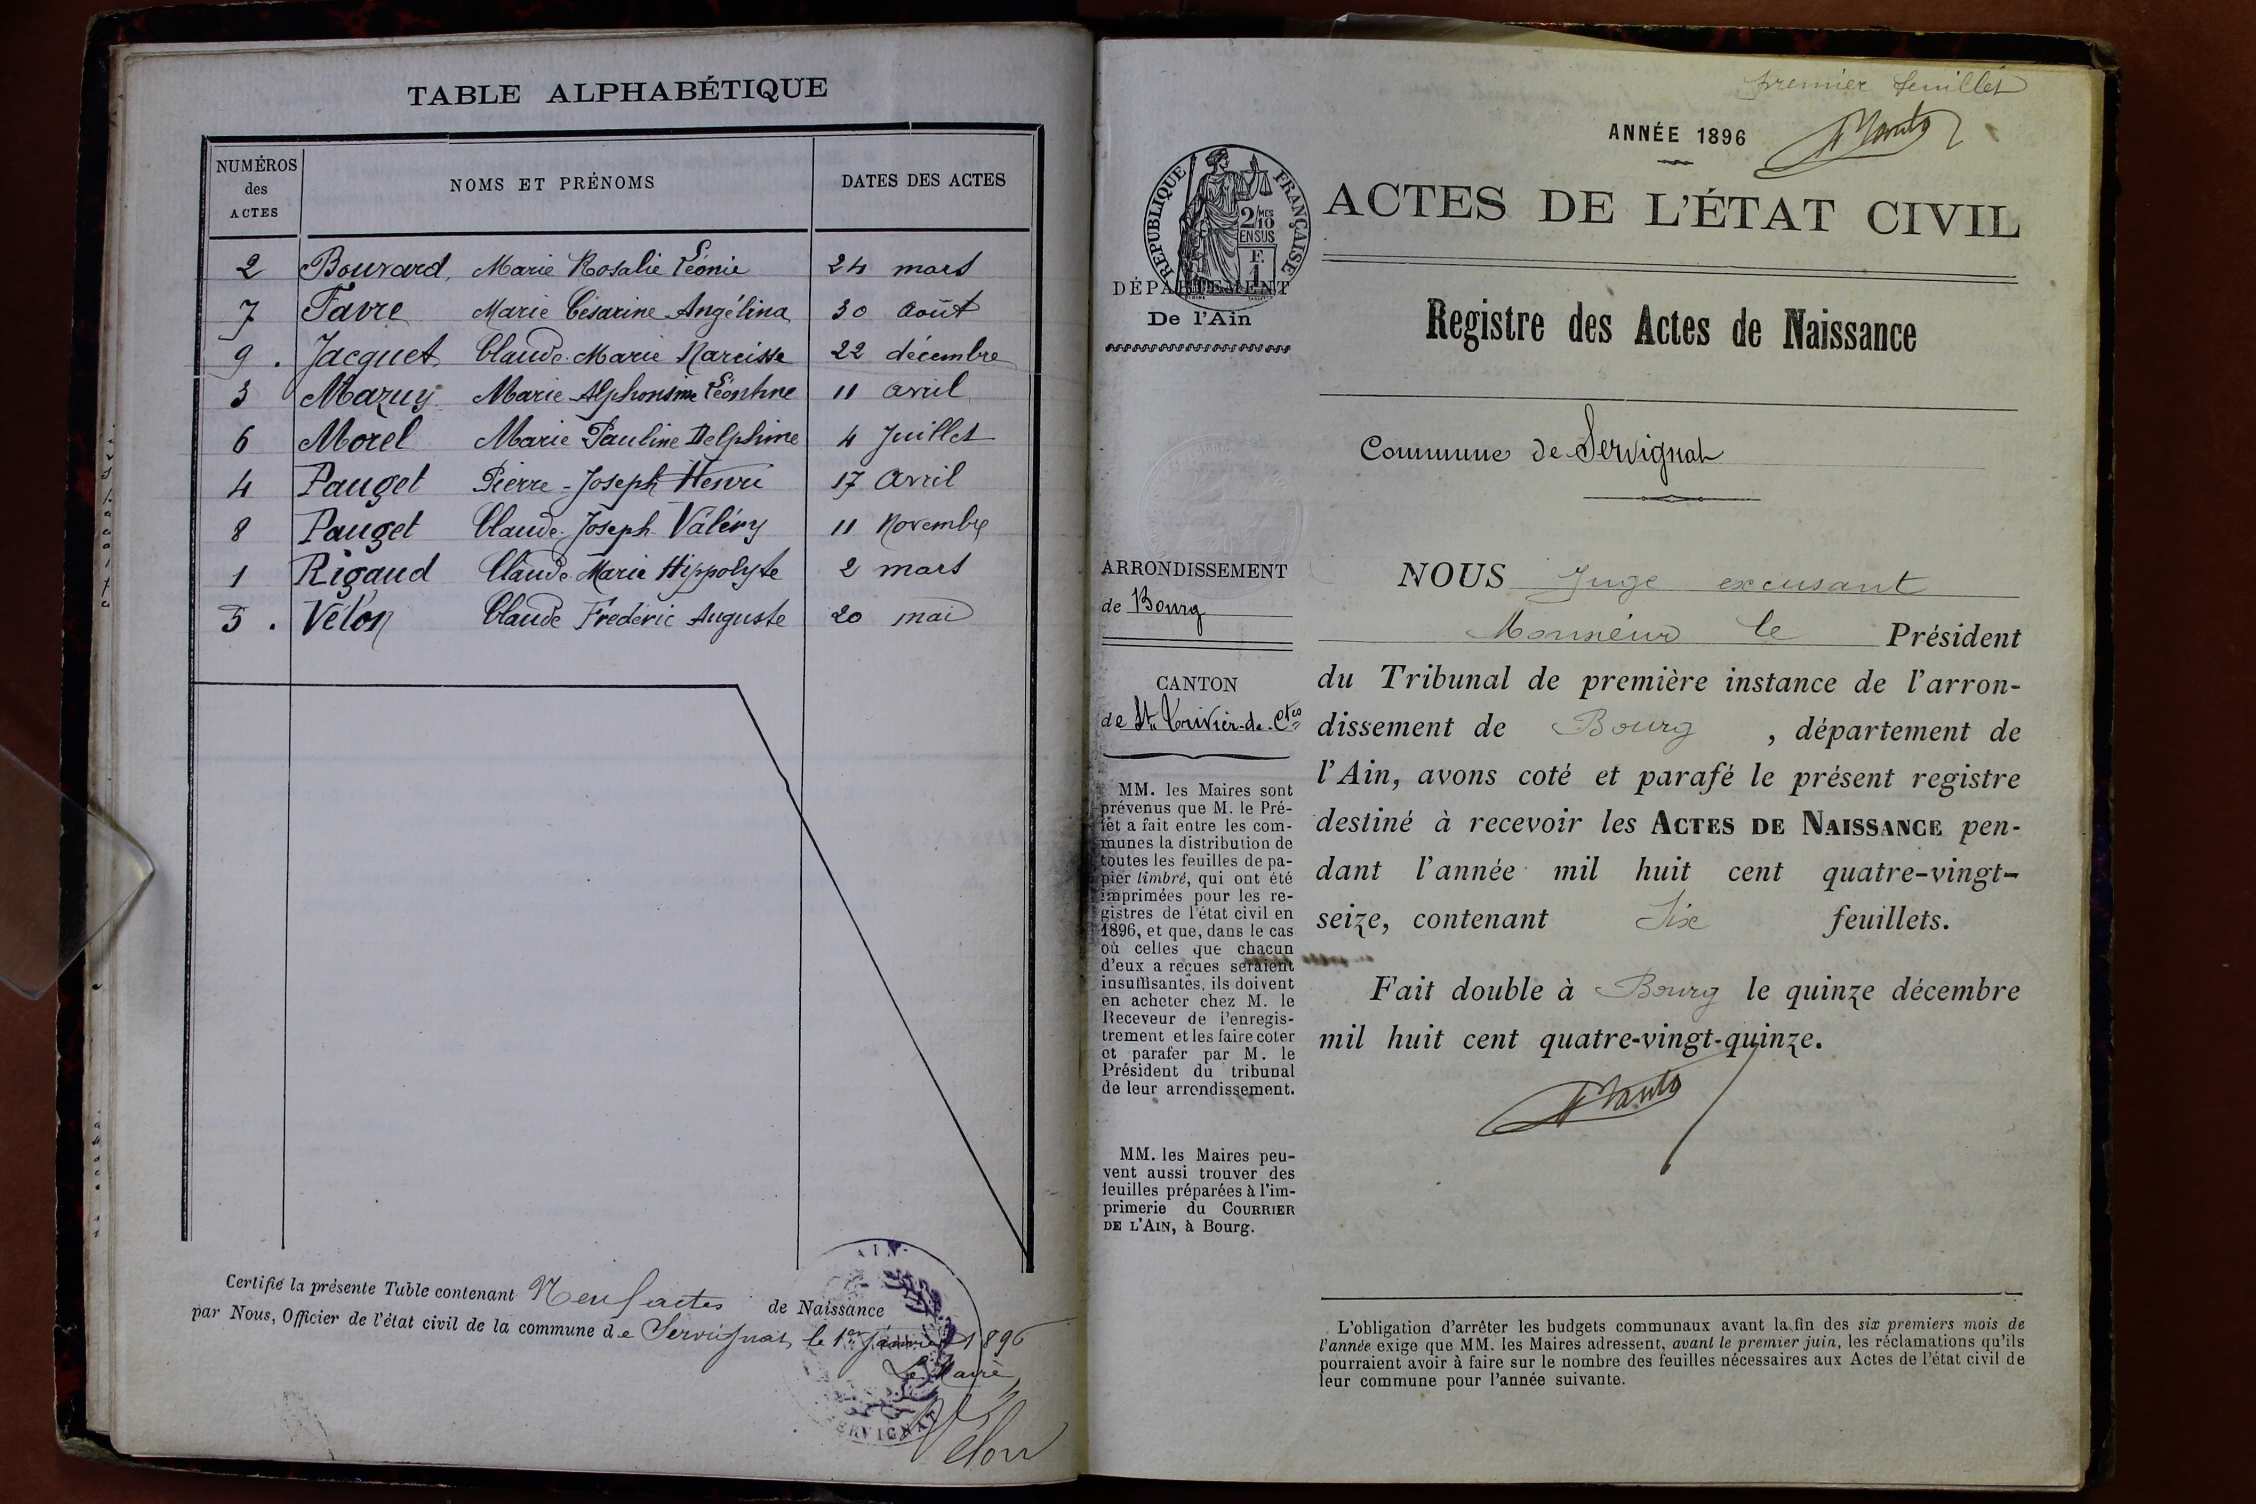 TABLE ALPHABÉTIQUE
NUMÉROS des ACTES NOMS ET PRÉNOMS DATES DES ACTES
2 Bouvard, Marie Rosalie Léonie 24 mars
7 Favre Marie Césarine Angélina 30 Août
9 . Jacquet Claude-Marie Narcisse 22 décembre
3 Mazuy Marie Alphonsine Léontine 11 avril
6 Morel Marie Pauline Delphine 4 Juillet
4 Pauget Pierre-Joseph Henri 17 Avril
8 Pauget Claude-Joseph Valéry 11 Novembre
1 Rigaud Claude-Marie Hippolyte 2 mars
5 . Vélon Claude Frédéric Auguste 20 mai
Certifié la présente Table contenant Neuf actes de Naissance
par Nous, Officier de l'état civil de la commune de Servignat, le 1er Janvier 1896
Le Maire
Vélon
AIN
SERVIGNAT
premier feuillet
ANNÉE 1896
RÉPUBLIQUE FRANÇAISE
2/10 MES
EN SUS
F.
1
ACTES DE L'ÉTAT CIVIL
DÉPARTEMENT
De l'Ain
Registre des Actes de Naissance
Commune de Servignat
ARRONDISSEMENT
de Bourg
CANTON
de St Trivier-de-Ctes
MM. les Maires sont
prévenus que M. le Pré-
fet a fait entre les com-
munes la distribution de
toutes les feuilles de pa-
pier timbré, qui ont été
imprimées pour les re-
gistres de l'état civil en
1896, et que, dans le cas
où celles que chacun
d'eux a reçues seraient
insuffisantes, ils doivent
en acheter chez M. le
Receveur de l'enregis-
trement et les faire coter
et parafer par M. le
Président du tribunal
de leur arrondissement.
MM. les Maires peu-
vent aussi trouver des
feuilles préparées à l'im-
primerie du COURRIER
DE L'AIN, à Bourg.
NOUS Juge excusant
Monsieur le Président
du Tribunal de première instance de l'arron-
dissement de Bourg , département de
l'Ain, avons coté et parafé le présent registre
destiné à recevoir les ACTES DE NAISSANCE pen-
dant l'année mil huit cent quatre-vingt-
seize, contenant Six feuillets.
Fait double à Bourg le quinze décembre
mil huit cent quatre-vingt-quinze.
L'obligation d'arrêter les budgets communaux avant la fin des six premiers mois de
l'année exige que MM. les Maires adressent, avant le premier juin, les réclamations qu'ils
pourraient avoir à faire sur le nombre des feuilles nécessaires aux Actes de l'état civil de
leur commune pour l'année suivante.